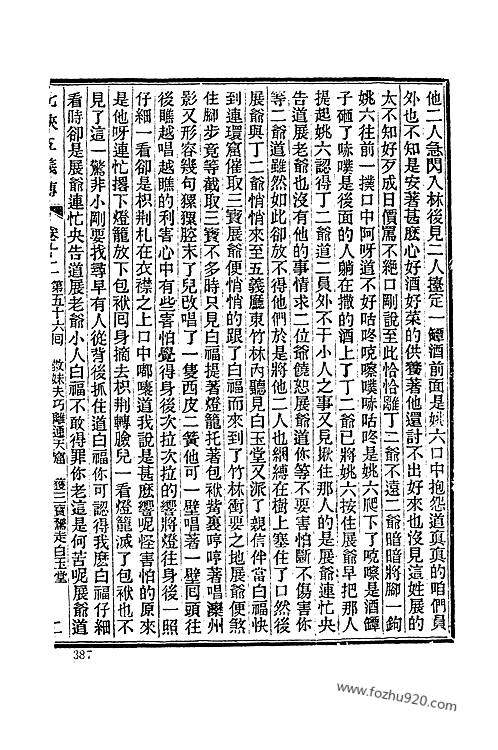 他二人急閃入林後見二人擡定一罈酒前面是姚六口中抱怨道真真的咱們員
外也不知是安著甚麽心好酒好菜的供養著他還討不出好來也沒見這姓展的
太不知好歹成日價罵不絕口剛說至此恰恰離丁二爺不遠二爺暗暗將脚一鉤
姚六往前一撲口中阿呀道不好咕咚㗳嚓噗哧咕咚是姚六爬下了㗳嚓是酒罈
子砸了哧噗是後面的人躺在撒的酒上了丁二爺已將姚六按住展爺早把那人
提起姚六認得丁二爺道二員外不干小人之事又見揪住那人的是展爺連忙央
告道展老爺也沒有他的事情求二位爺饒恕展爺道你等不要害怕斷不傷害你
等二爺道雖然如此卻放不得他們於是將他二人也綑縛在樹上塞住了口然後
展爺與丁二爺悄悄來至五義廳東竹林內聽見白玉堂又派了親信伴當白福快
到連環窟催取三寶展爺便悄悄的跟了白福而來到了竹林衝要之地展爺便煞
住脚步竟等截取三寶不多時只見白福提著燈籠托著包袱嘴裏哼哼著唱灤州
影又形容幾句猓猓腔末了兒改唱了一隻西皮二簧他可一壁唱著一壁囘頭往
後瞧越唱越瞧的利害心中有些害怕覺得身後次拉次拉的響將燈往身後一照
仔細一看卻是枳荆札在衣襟之上口中嘟嘍道我說是甚麽響呢怪害怕的原來
是他呀連忙撂下燈籠放下包袱囘身摘去枳荆轉臉兒一看燈籠滅了包袱也不
見了這一驚非小剛要找尋早有人從背後抓住道白福你可認得我麽白福仔細
看時卻是展爺連忙央告道展老爺小人白福不敢得罪你老這是何苦呢展爺道
七俠五義傳 卷十二 第五十六囘 救妹夫巧離通天窟 獲三寶驚走白玉堂 二
387
www.fozhu920.com